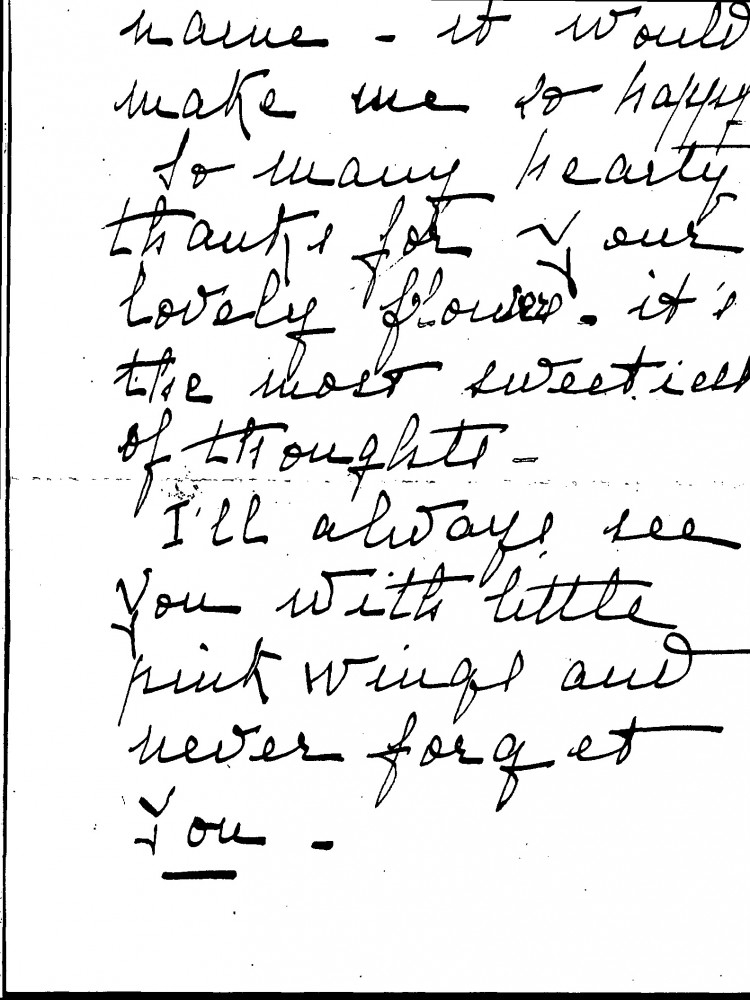 name - it would
make me so happy
So many hearty
thanks for your
lovely flowers - it's
the most sweetiest
of thoughts -
I'll always see
you with little
pink wings and
never forget
you -